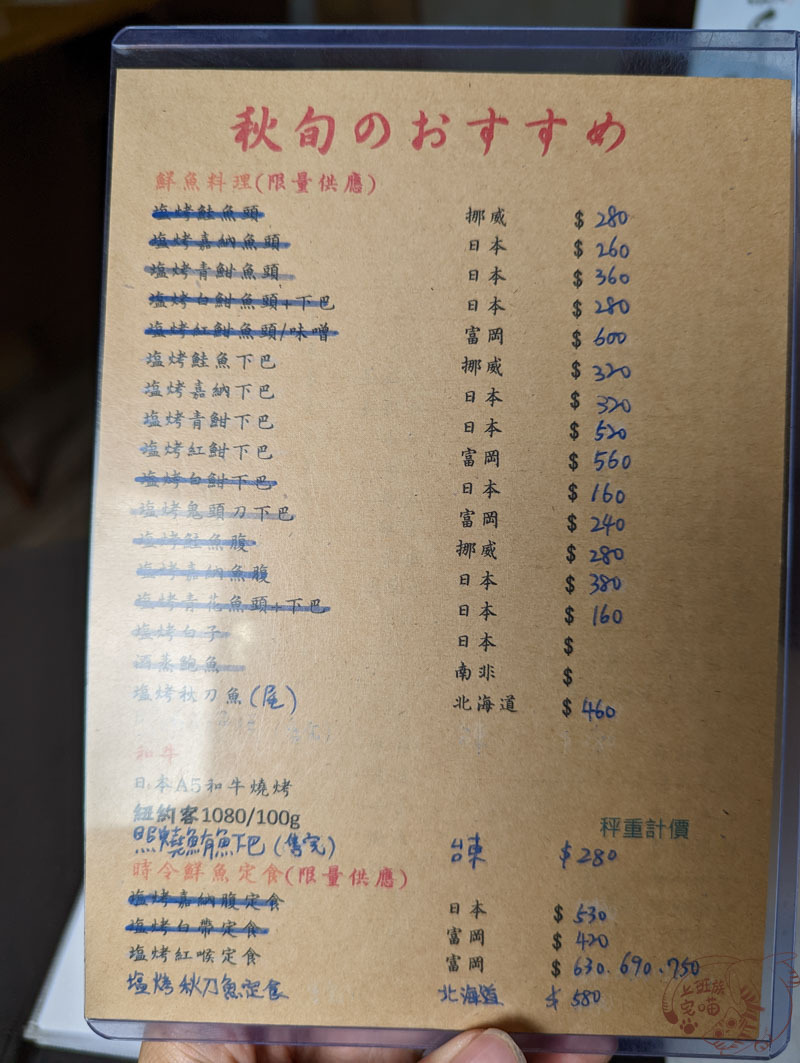 秋旬のおすすめ
鮮魚料理(限量供應)
塩烤鮭魚頭 挪威 $ 280
塩烤嘉納魚頭 日本 $ 260
塩烤青魽魚頭 日本 $ 360
塩烤白魽魚頭+下巴 日本 $ 280
塩烤紅魽魚頭/味噌 富岡 $ 600
塩烤鮭魚下巴 挪威 $ 320
塩烤嘉納下巴 日本 $ 320
塩烤青魽下巴 日本 $ 520
塩烤紅魽下巴 富岡 $ 560
塩烤白魽下巴 日本 $ 160
塩烤鬼頭刀下巴 富岡 $ 240
塩烤鮭魚腹 挪威 $ 280
塩烤嘉納魚腹 日本 $ 380
塩烤青花魚頭+下巴 日本 $ 160
塩烤白子 日本 $
酒蒸鮑魚 南非 $
塩烤秋刀魚(尾) 北海道 $ 460
和牛
日本A5和牛燒烤
紐約客1080/100g 秤重計價
照燒鮪魚下巴(售完) 台東 $280
時令鮮魚定食(限量供應)
塩烤嘉納腹定食 日本 $ 530
塩烤白帶定食 富岡 $ 420
塩烤紅喉定食 富岡 $ 630.690.750
塩烤秋刀魚定食 北海道 $ 580
上班族
宅喵